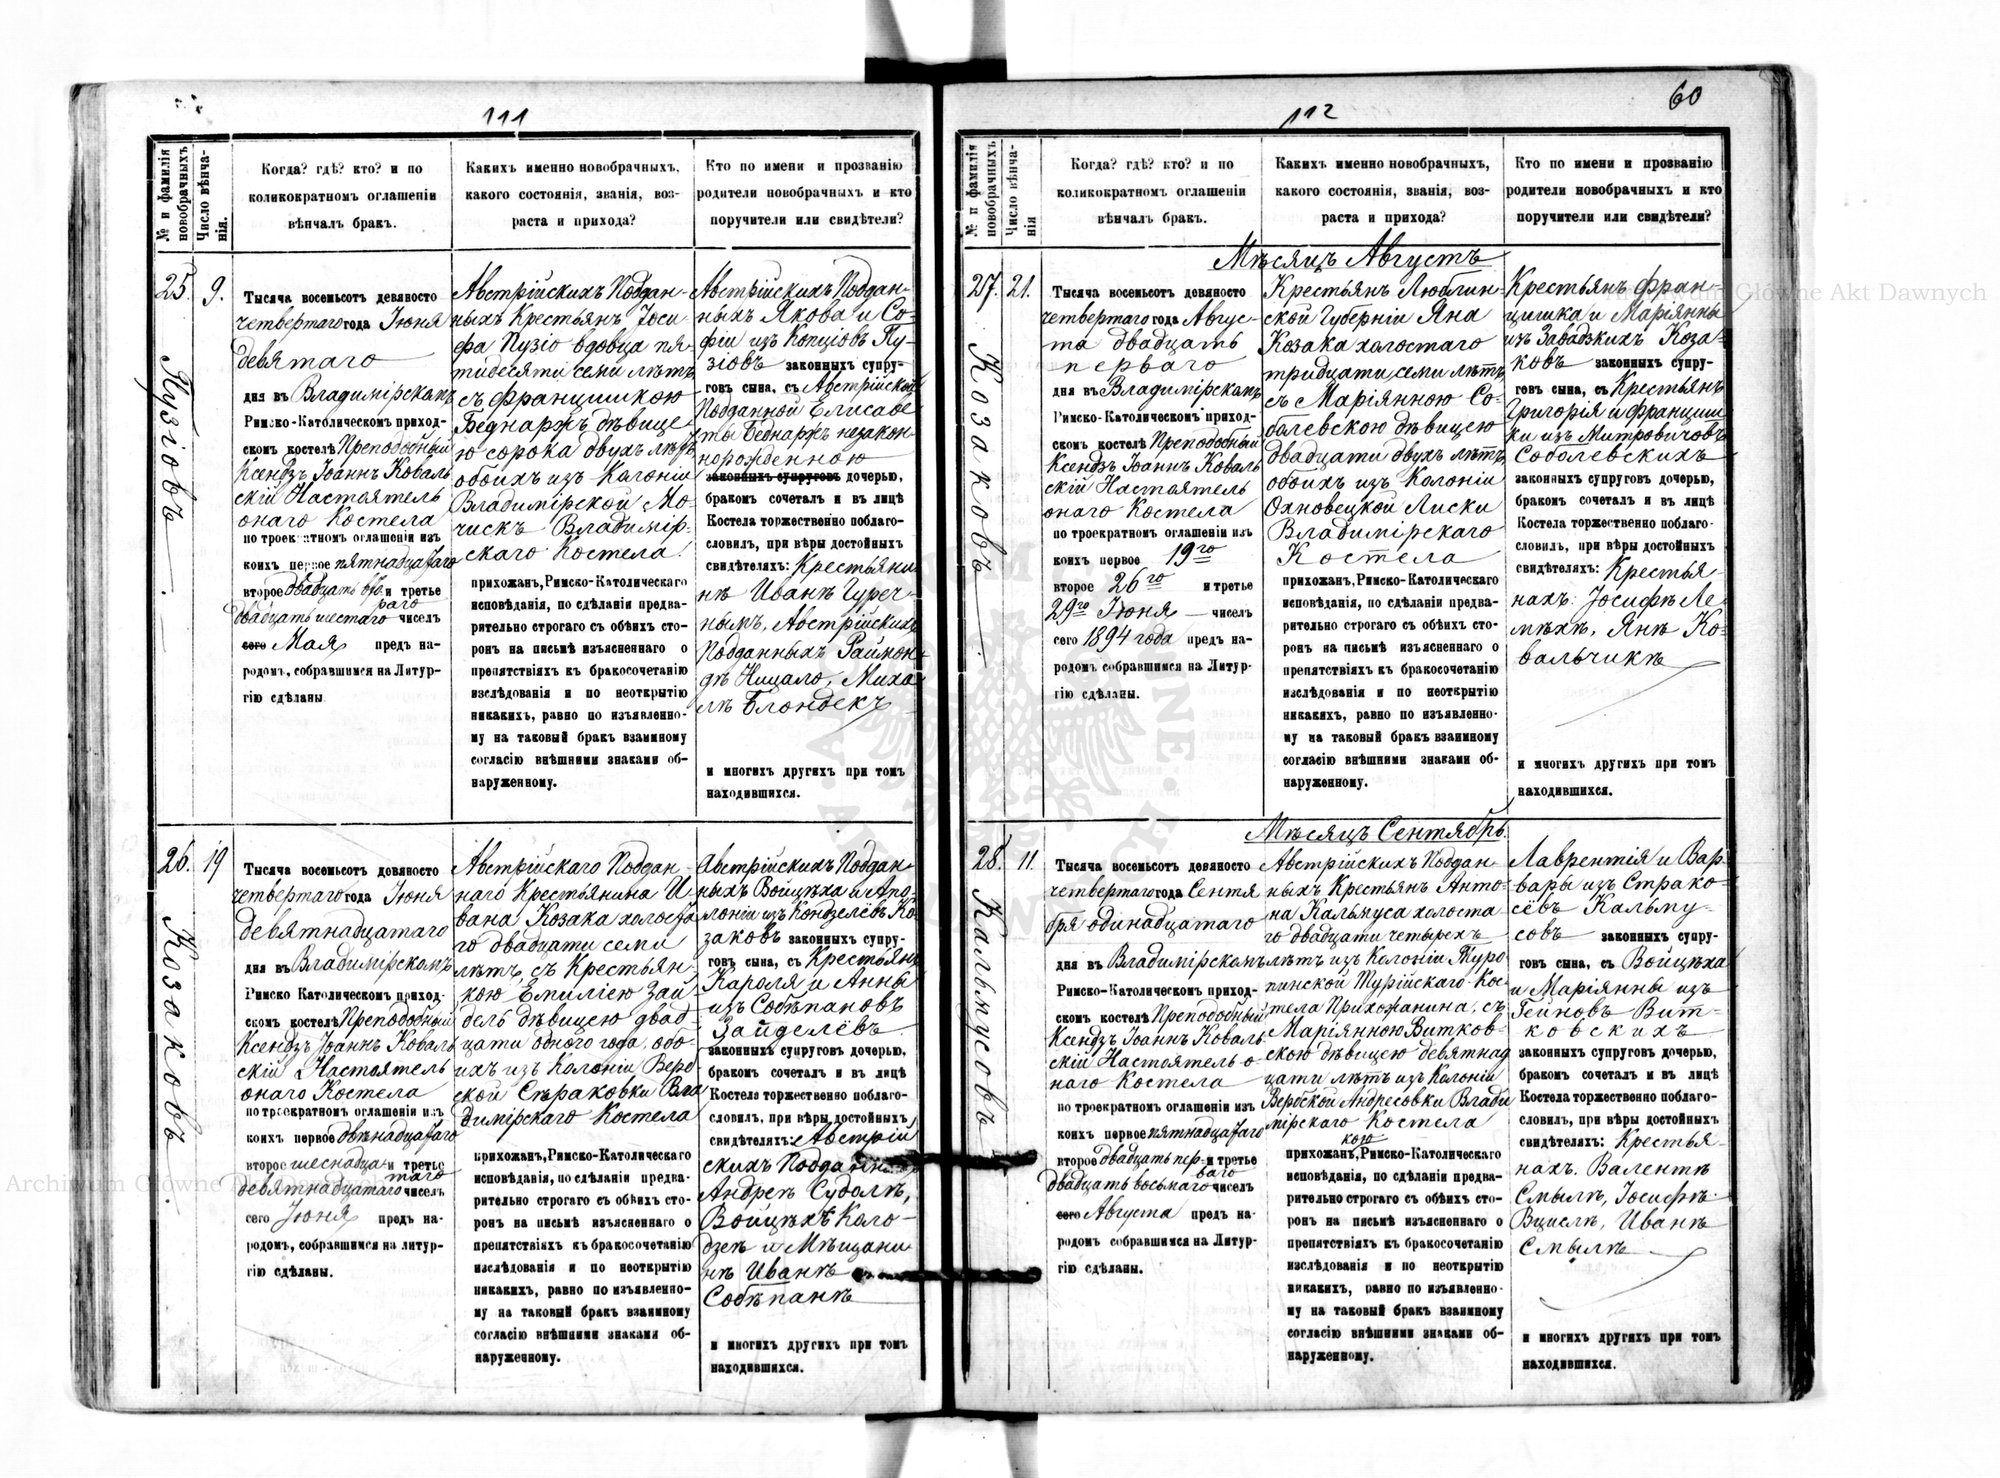 111
№ и фамилія новобрачныхъ
Число вѣнча-
нія.
Когда? гдѣ? кто? и по
коликократномъ оглашеніи
вѣнчалъ бракъ.
Какихъ именно новобрачныхъ,
какого состоянія, званія, воз-
раста и прихода?
Кто по имени и прозванію
родители новобрачныхъ и кто
поручители или свидѣтели?
25.
9.
Пузіовъ
Тысяча восемьсотъ девяносто
четвертаго года Іюня
девятаго
дня въ Владимірскомъ
Римско-Католическомъ приход-
скомъ костелѣ Преподобный
Ксендзъ Іоаннъ Коваль
скій Настоятель
онаго Костела
по троекратномъ оглашеніи изъ
коихъ первое пятнадцатаго
второе двадцать вто- и третье
раго
двадцать шестаго чиселъ
сего Мая предъ на-
родомъ, собравшимся на Литур-
гію сдѣланы.
Австрійскихъ Поддан-
ныхъ Крестьянъ Іоси
фа Пузіо вдовца пя-
тидесяти семи лѣтъ
съ Францишкою
Беднаржъ дѣвице
ю сорока двухъ лѣтъ
обоихъ изъ Колоніи
Владимірской Мо-
чискъ Владимір-
скаго Костела
прихожанъ, Римско-Католическаго
исповѣданія, по сдѣланіи предва-
рительно строгаго съ обѣихъ сто-
ронъ на письмѣ изъясненнаго о
препятствіяхъ къ бракосочетанію
изслѣдованія и по неоткрытію
никакихъ, равно по изъявленно-
му на таковый бракъ взаимному
согласію внѣшними знаками об-
наруженному.
Австрійскихъ Поддан-
ныхъ Якова и Со-
фіи изъ Копціовъ Пу-
зіовъ законныхъ супру-
говъ сына, съ Австрійской
Подданной Елисаве-
ты Беднаржъ незакон-
норожденною
законныхъ супруговъ дочерью,
бракомъ сочеталъ и въ лицѣ
Костела торжественно поблаго-
словилъ, при вѣры достойныхъ
свидѣтеляхъ: Крестьяни
нѣ Иванѣ Гуреч-
нымъ, Австрійскихъ
Подданныхъ Раймон-
дѣ Ницало, Миха
лѣ Блондекъ
и многихъ другихъ при томъ
находившихся.
26.
19
Козаковъ
Тысяча восемьсотъ девяносто
четвертаго года Іюня
девятнадцатаго
дня въ Владимірскомъ
Римско Католическомъ приход-
скомъ костелѣ Преподобный
Ксендзъ Іоаннъ Коваль
скій Настоятель
онаго Костела
по троекратномъ оглашеніи изъ
коихъ первое двѣнадцатаго
второе шеснадца- и третье
таго
девятнадцатаго чиселъ
сего Іюня предъ на-
родомъ, собравшимся на литур-
гію сдѣланы.
Австрійскаго Поддан-
наго Крестьянина И
вана Козака холоста
го двадцати семи
лѣтъ, съ Крестьян-
кою Емиліею Зай
дель дѣвицею двад
цати одного года, обо-
ихъ изъ Колоніи Верб
ской Страковки Вла
димірскаго Костела
прихожанъ, Римско-Католическаго
исповѣданія, по сдѣланіи предва-
рительно строгаго съ обѣихъ сто-
ронъ на письмѣ изъясненнаго о
препятствіяхъ къ бракосочетанію
изслѣдованія и по неоткрытію
никакихъ, равно по изъявленно-
му на таковый бракъ взаимному
согласію внѣшними знаками об-
наруженному.
Австрійскихъ Поддан
ныхъ Войцѣха и Апо-
лоніи изъ Кондзелёвъ Ко-
заковъ законныхъ супру-
говъ сына, съ Крестьянъ
Кароля и Анны
изъ Собѣпановъ
Зайделёвъ
законныхъ супруговъ дочерью,
бракомъ сочеталъ и въ лицѣ
Костела торжественно поблаго-
словилъ, при вѣры достойныхъ
свидѣтеляхъ: Австрій
скихъ Подданныхъ
Андреѣ Судолъ,
Войцѣхѣ Коло-
дзеѣ и Мѣщани
нѣ Иванѣ
Собѣпанѣ
и многихъ другихъ при томъ
находившихся.
112
60
№ и фамилія новобрачныхъ
Число вѣнча-
нія
Когда? гдѣ? кто? и по
коликократномъ оглашеніи
вѣнчалъ бракъ.
Какихъ именно новобрачныхъ,
какого состоянія, званія, воз-
раста и прихода?
Кто по имени и прозванію
родители новобрачныхъ и кто
поручители или свидѣтели?
Мѣсяцъ Августъ
27.
21.
Козаковъ
Тысяча восемьсотъ девяносто
четвертаго года Авгус-
та двадцать
перваго
дня въ Владимірскомъ
Римско-Католическомъ приход-
скомъ костелѣ Преподобный
Ксендзъ Іоаннъ Коваль
скій Настоятель
онаго Костела
по троекратномъ оглашеніи изъ
коихъ первое 19го
второе 26го и третье
29го Іюня чиселъ
сего 1894 года предъ на-
родомъ собравшимся на Литур-
гію сдѣланы.
Крестьянъ Люблин-
ской Губерніи Яна
Козака холостаго
тридцати семи лѣтъ
съ Маріянною Со-
болевскою дѣвицею
двадцати двухъ лѣтъ
обоихъ изъ Колоніи
Охновецкой Лиски
Владимірскаго
Костела
прихожанъ, Римско-Католическаго
исповѣданія, по сдѣланіи предва-
рительно строгаго съ обѣихъ сто-
ронъ на письмѣ изъясненнаго о
препятствіяхъ къ бракосочетанію
изслѣдованія и по неоткрытію
никакихъ, равно по изъявленно-
му на таковый бракъ взаимному
согласію внѣшними знаками об-
наруженному.
Крестьянъ Фран-
цишка и Маріянны
изъ Завадзкихъ Коза-
ковъ законныхъ супру-
говъ сына, съ Крестьянъ
Григорія и Францишк
ки изъ Митровичовъ
Соболевскихъ
законныхъ супруговъ дочерью,
бракомъ сочеталъ и въ лицѣ
Костела торжественно поблаго-
словилъ, при вѣры достойныхъ
свидѣтеляхъ: Крестья
нахъ: Іосифѣ Ле-
мѣхъ, Янѣ Ко-
вальчикѣ
и многихъ другихъ при томъ
находившихся.
Мѣсяцъ Сентябрь
28.
11.
Кальмусовъ
Тысяча восемьсотъ девяносто
четвертаго года Сентя
бря одинадцатаго
дня въ Владимірскомъ
Римско-Католическомъ приход-
скомъ костелѣ Преподобный
Ксендзъ Іоаннъ Коваль
скій Настоятель о-
наго Костела
по троекратномъ оглашеніи изъ
коихъ первое пятнадцатаго
второе двадцать пер- и третье
ваго
двадцать восьмаго чиселъ
сего Августа предъ на-
родомъ собравшимся на Литур-
гію сдѣланы.
Австрійскихъ Поддан
ныхъ Крестьянъ Анто-
на Кальмуса холоста
го двадцати четырехъ
лѣтъ изъ Колоніи Туро
пинской Турійскаго Кос
тела Прихожанина, съ
Маріянною Витков-
скою дѣвицею девятнад
цати лѣтъ изъ Колоніи
Вербской Андресовки Влади
мірскаго Костела
кою
прихожанъ, Римско-Католическаго
исповѣданія, по сдѣланіи предва-
рительно строгаго съ обѣихъ сто-
ронъ на письмѣ изъясненнаго о
препятствіяхъ къ бракосочетанію
изслѣдованія и по неоткрытію
никакихъ, равно по изъявленно-
му на таковый бракъ взаимному
согласію внѣшними знаками об-
наруженному.
Лаврентія и Вар-
вары изъ Страко-
сёвъ Кальму-
совъ законныхъ супру-
говъ сына, съ Войцѣха
и Маріянны изъ
Гейновъ Вит-
ковскихъ
законныхъ супруговъ дочерью,
бракомъ сочеталъ и въ лицѣ
Костела торжественно поблаго-
словилъ, при вѣры достойныхъ
свидѣтеляхъ: Крестья-
нахъ. Валентѣ
Смылѣ, Іосифѣ
Вциелѣ, Иванѣ
Смылѣ
и многихъ другихъ при томъ
находившихся.
Archiwum Główne Akt Dawnych
Archiwum Główne Akt Dawnych